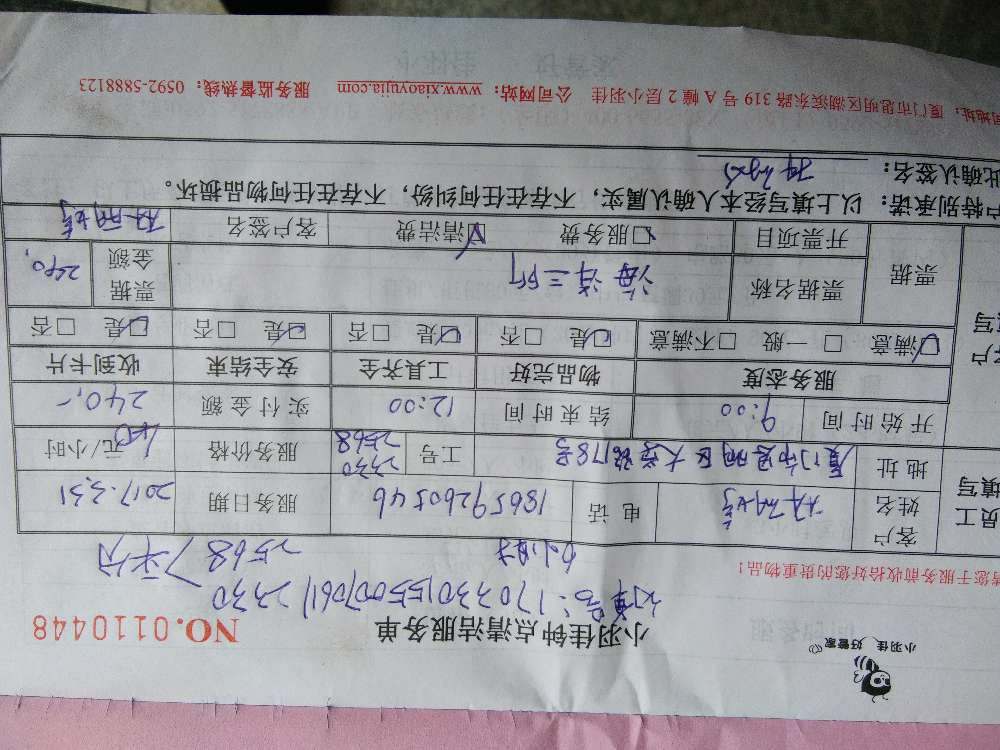 小羽佳 好管家
小羽佳钟点清洁服务单
NO.0110448
订单号:170330155007061
2330
2568
平分
6小时
请您于服务前收拾好您的贵重物品!
员工填写
客户姓名
电话
18659260546
服务日期
2017.3.31
地址
厦门市思明区大学路178号
工号
2330
2568
服务价格
40元/小时
开始时间
9:00
结束时间
12:00
实付金额
240,-
服务态度
物品完好
工具齐全
安全结束
收到卡片
☑满意 □一般 □不满意
☑是 □否
☑是 □否
☑是 □否
☑是 □否
票据
票据名称
海洋三所
票据金额
240,
开票项目
□服务费
☑清洁费
客户签名
户特别承诺:以上填写经本人确认属实,不存在任何纠纷,不存在任何物品损坏。
此确认签名:
司地址:厦门市思明区湖滨东路 319 号 A 幢 2 层小羽佳 公司网站:www.xiaoyujia.com 服务监督热线:0592-5888123